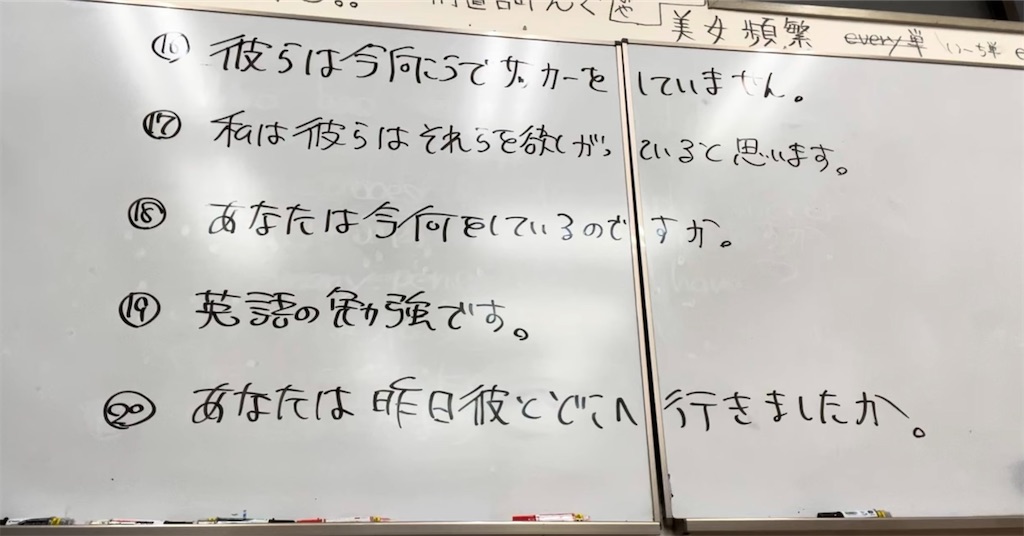 美女頻繁 every単
⑯ 彼らは今向こうでサッカーをしていません。
⑰ 私は彼らはそれらを欲しがっていると思います。
⑱ あなたは今何をしているのですか。
⑲ 英語の勉強です。
⑳ あなたは昨日彼とどこへ行きましたか。